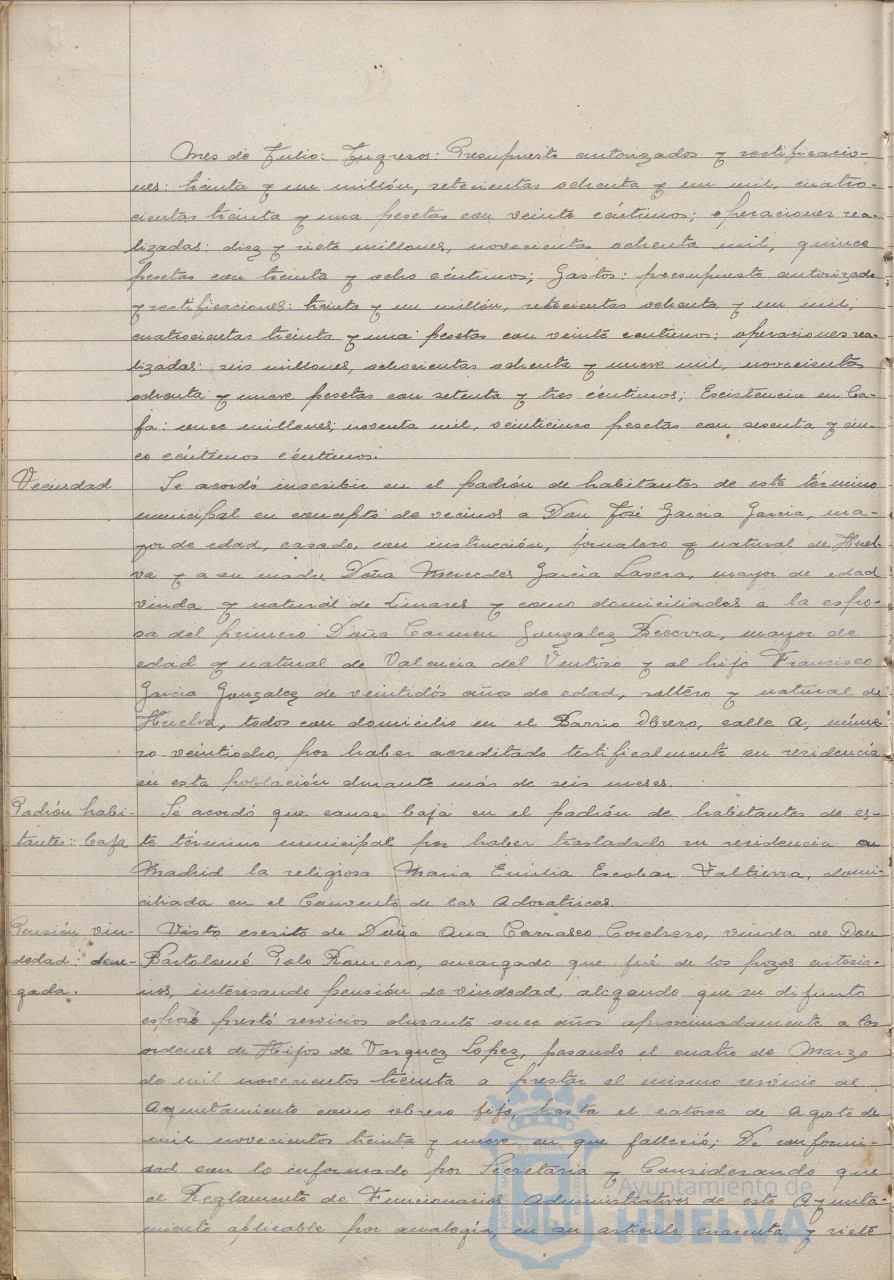 Mes de Julio: Ingresos: Presupuesto autorizados y rectificacio-
nes: treinta y un millón, setecientas ochenta y un mil, cuatro-
cientas treinta y una pesetas con veinte céntimos; operaciones rea-
lizadas: diez y siete millones, novecientas ochenta mil, quince
pesetas con treinta y ocho céntimos; Gastos: presupuesto autorizado
y rectificaciones: treinta y un millón, setecientas ochenta y un mil,
cuatrocientas treinta y una pesetas con veinte centimos; operaciones rea-
lizadas: seis millones, ochocientas ochenta y nueve mil, novecientas
ochenta y nueve pesetas con setenta y tres céntimos; Escistencia en Ca-
ja: once millones; noventa mil, veinticinco pesetas con sesenta y cin-
co céntimos céntimos.
Vecindad
Se acordó inscribir en el padrón de habitantes de este término
municipal en concepto de vecinos a Don José Garcia Garcia, ma-
yor de edad, casado, con instrucción, jornalero y natural de Huel-
va y a su madre Doña Mercedes Garcia Lasera, mayor de edad
viuda y natural de Linares y como domiciliados a la espo-
sa del primero Doña Carmen Gonzalez Becerra, mayor de
edad y natural de Valencia del Ventoso y al hijo Francisco
Garcia Gonzalez de veintidós años de edad, soltero y natural de
Huelva, todos con domicilio en el Barrio Obrero, calle A, núme-
ro veintiocho, por haber acreditado testificalmente su residencia
en esta población durante más de seis meses.
Padrón habi-
tantes: baja
Se acordó que cause baja en el padrón de habitantes de es-
te término municipal por haber trasladado su residencia a
Madrid la religiosa Maria Emilia Escobar Valtierra, domi-
ciliada en el Convento de las Adoratrices.
Pensión viu-
dedad: dene-
gada.
Visto escrito de Doña Ana Carrasco Cordrero, viuda de Don
Bartolomé Polo Romero, encargado que fué de los pozos artesia-
nos, interesando pensión de viudedad, alegando que su difunto
esposo prestó servicios durante once años aproximadamente a las
ordenes de Hijos de Vazquez Lopez, pasando el cuatro de Marzo
de mil novecientos treinta a prestar el mismo servicio al
Ayuntamiento como obrero fijo, hasta el catorce de Agosto de
mil novecientos treinta y nueve en que falleció; De conformi-
dad con lo informado por Secretaria y Considerando que
el Reglamento de Funcionarios Administrativos de este Ayunta-
miento aplicable por analogía, en su articulo cuarenta y siete
Ayuntamiento de
HUELVA